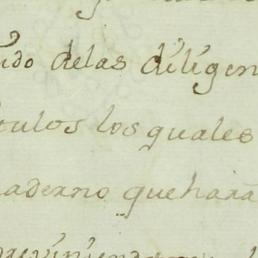 ido delas diligen
tulos los quales
aderno que hara